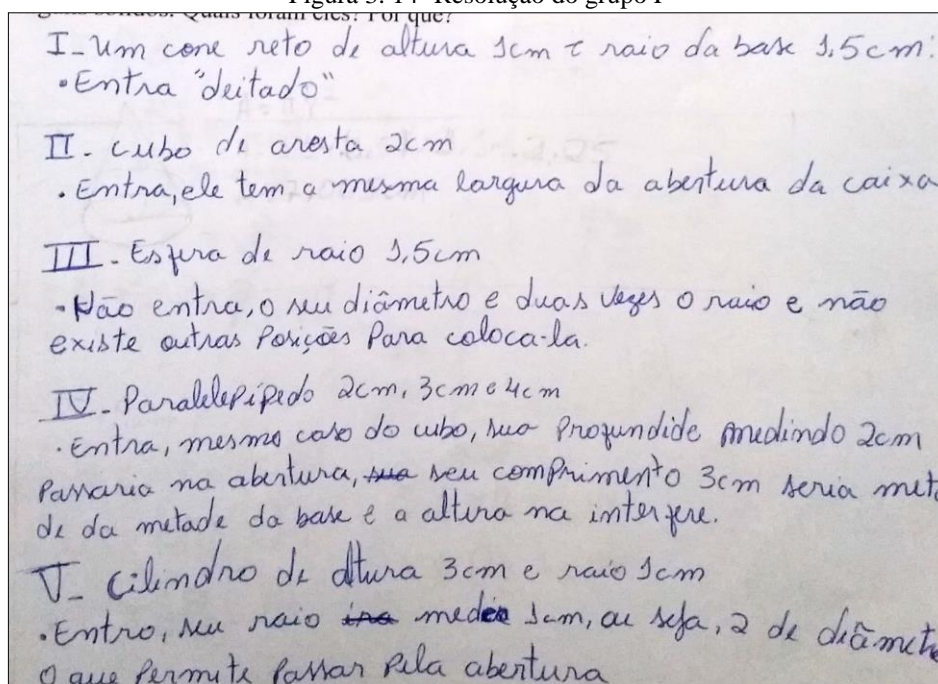 Figura 3. 14- Resolução do grupo I
guns sólidos. Quais foram eles? Por que?
I- Um cone reto de altura 1cm e raio da base 1.5cm:
• Entra "deitado"
II- Cubo de aresta 2cm
. Entra, ele tem a mesma largura da abertura da caixa
III- Esfera de raio 1,5cm
- Não entra, o seu diâmetro e duas vezes o raio e não
existe outras Posições Para coloca-la.
IV- Paralelepípedo 2cm, 3cm e 4cm
. Entra, mesmo caso do cubo, sua Profundide medindo 2cm
Passaria na abertura, seu comprimento 3cm seria meta
de da metade da base e a altura na interfere.
V- Cilindro de altura 3cm e raio 1cm
. Entra, seu raio mede 1cm, ou seja, 2 de diâmetr
O que Permite Passar Pela abertura